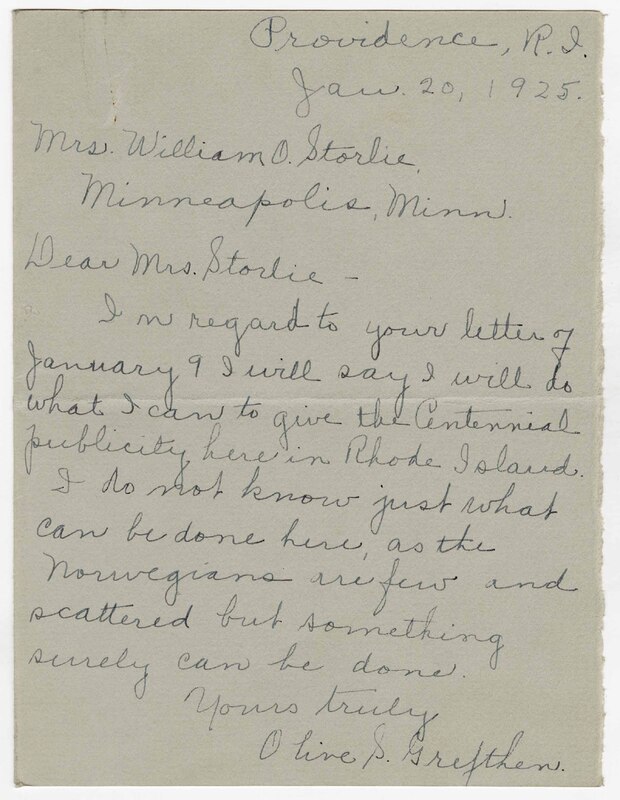 Providence, R.I.
Jan. 20, 1925.
Mrs. William O. Storlie,
Minneapolis, Minn.
Dear Mrs. Storlie -
In regard to your letter of
January 9 I will say I will do
what I can to give the Centennial
publicity here in Rhode Island.
I do not know just what
can be done here, as the
Norwegians are few and
scattered but something
surely can be done.
Yours truly
Olive S.